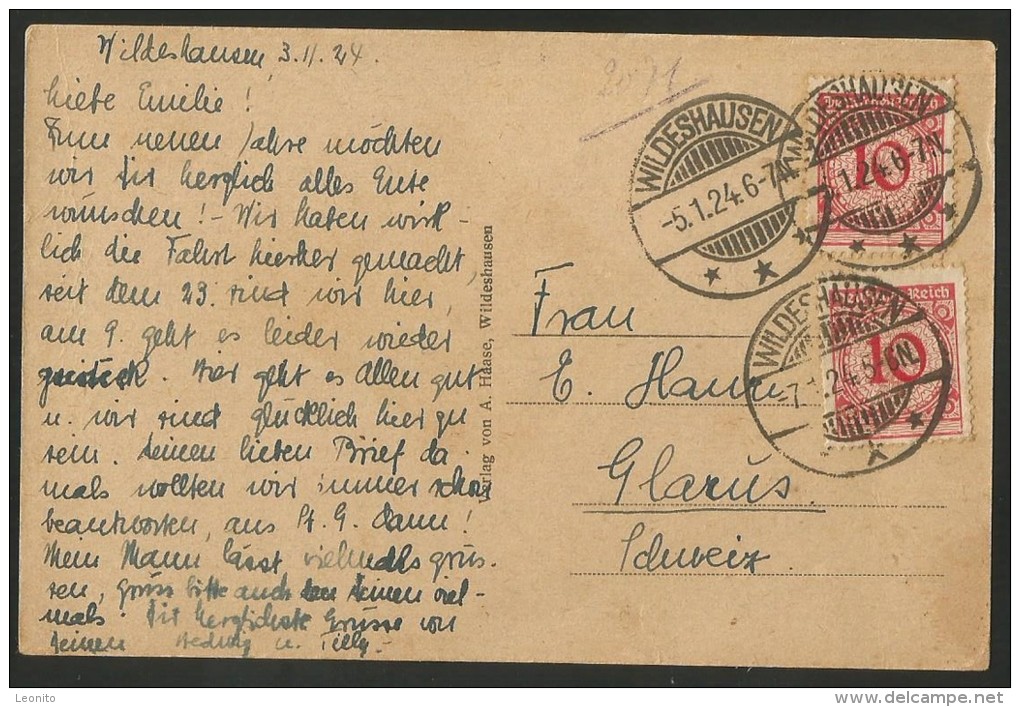 Wildeshausen, 3.II.24.
Liebe Emilie!
Zum neuen Jahre möchten
wir Dir herzlich alles Gute
wünschen! - Wir haben wirk-
lich die Fahrt hierher gemacht,
seit dem 23. sind wir hier,
am 9. geht es leider wieder
zurück. Hier geht es Allen gut
u. wir sind glücklich hier zu
sein. Deinen lieben Brief da-
mals wollten wir immer schon
beantworten, aus St. G. dann!
Mein Mann lässt vielmals grüs-
sen, grüss bitte auch den Deinen viel-
mals. Dir herzlichste Grüsse von
Deinen Hedwig u. Tilly.-
Verlag von A. Haase, Wildeshausen
2071
WILDESHAUSEN
-5.1.24.6-7N.
WILDESHAUSEN
1.24.6-7N.
Deutsches Reich
10
WILDESHAUSEN
-7.1.24.5-6N.
Reich
10
Frau
E.
Glarus.
Schweiz
Leonito
www.delcampe.net